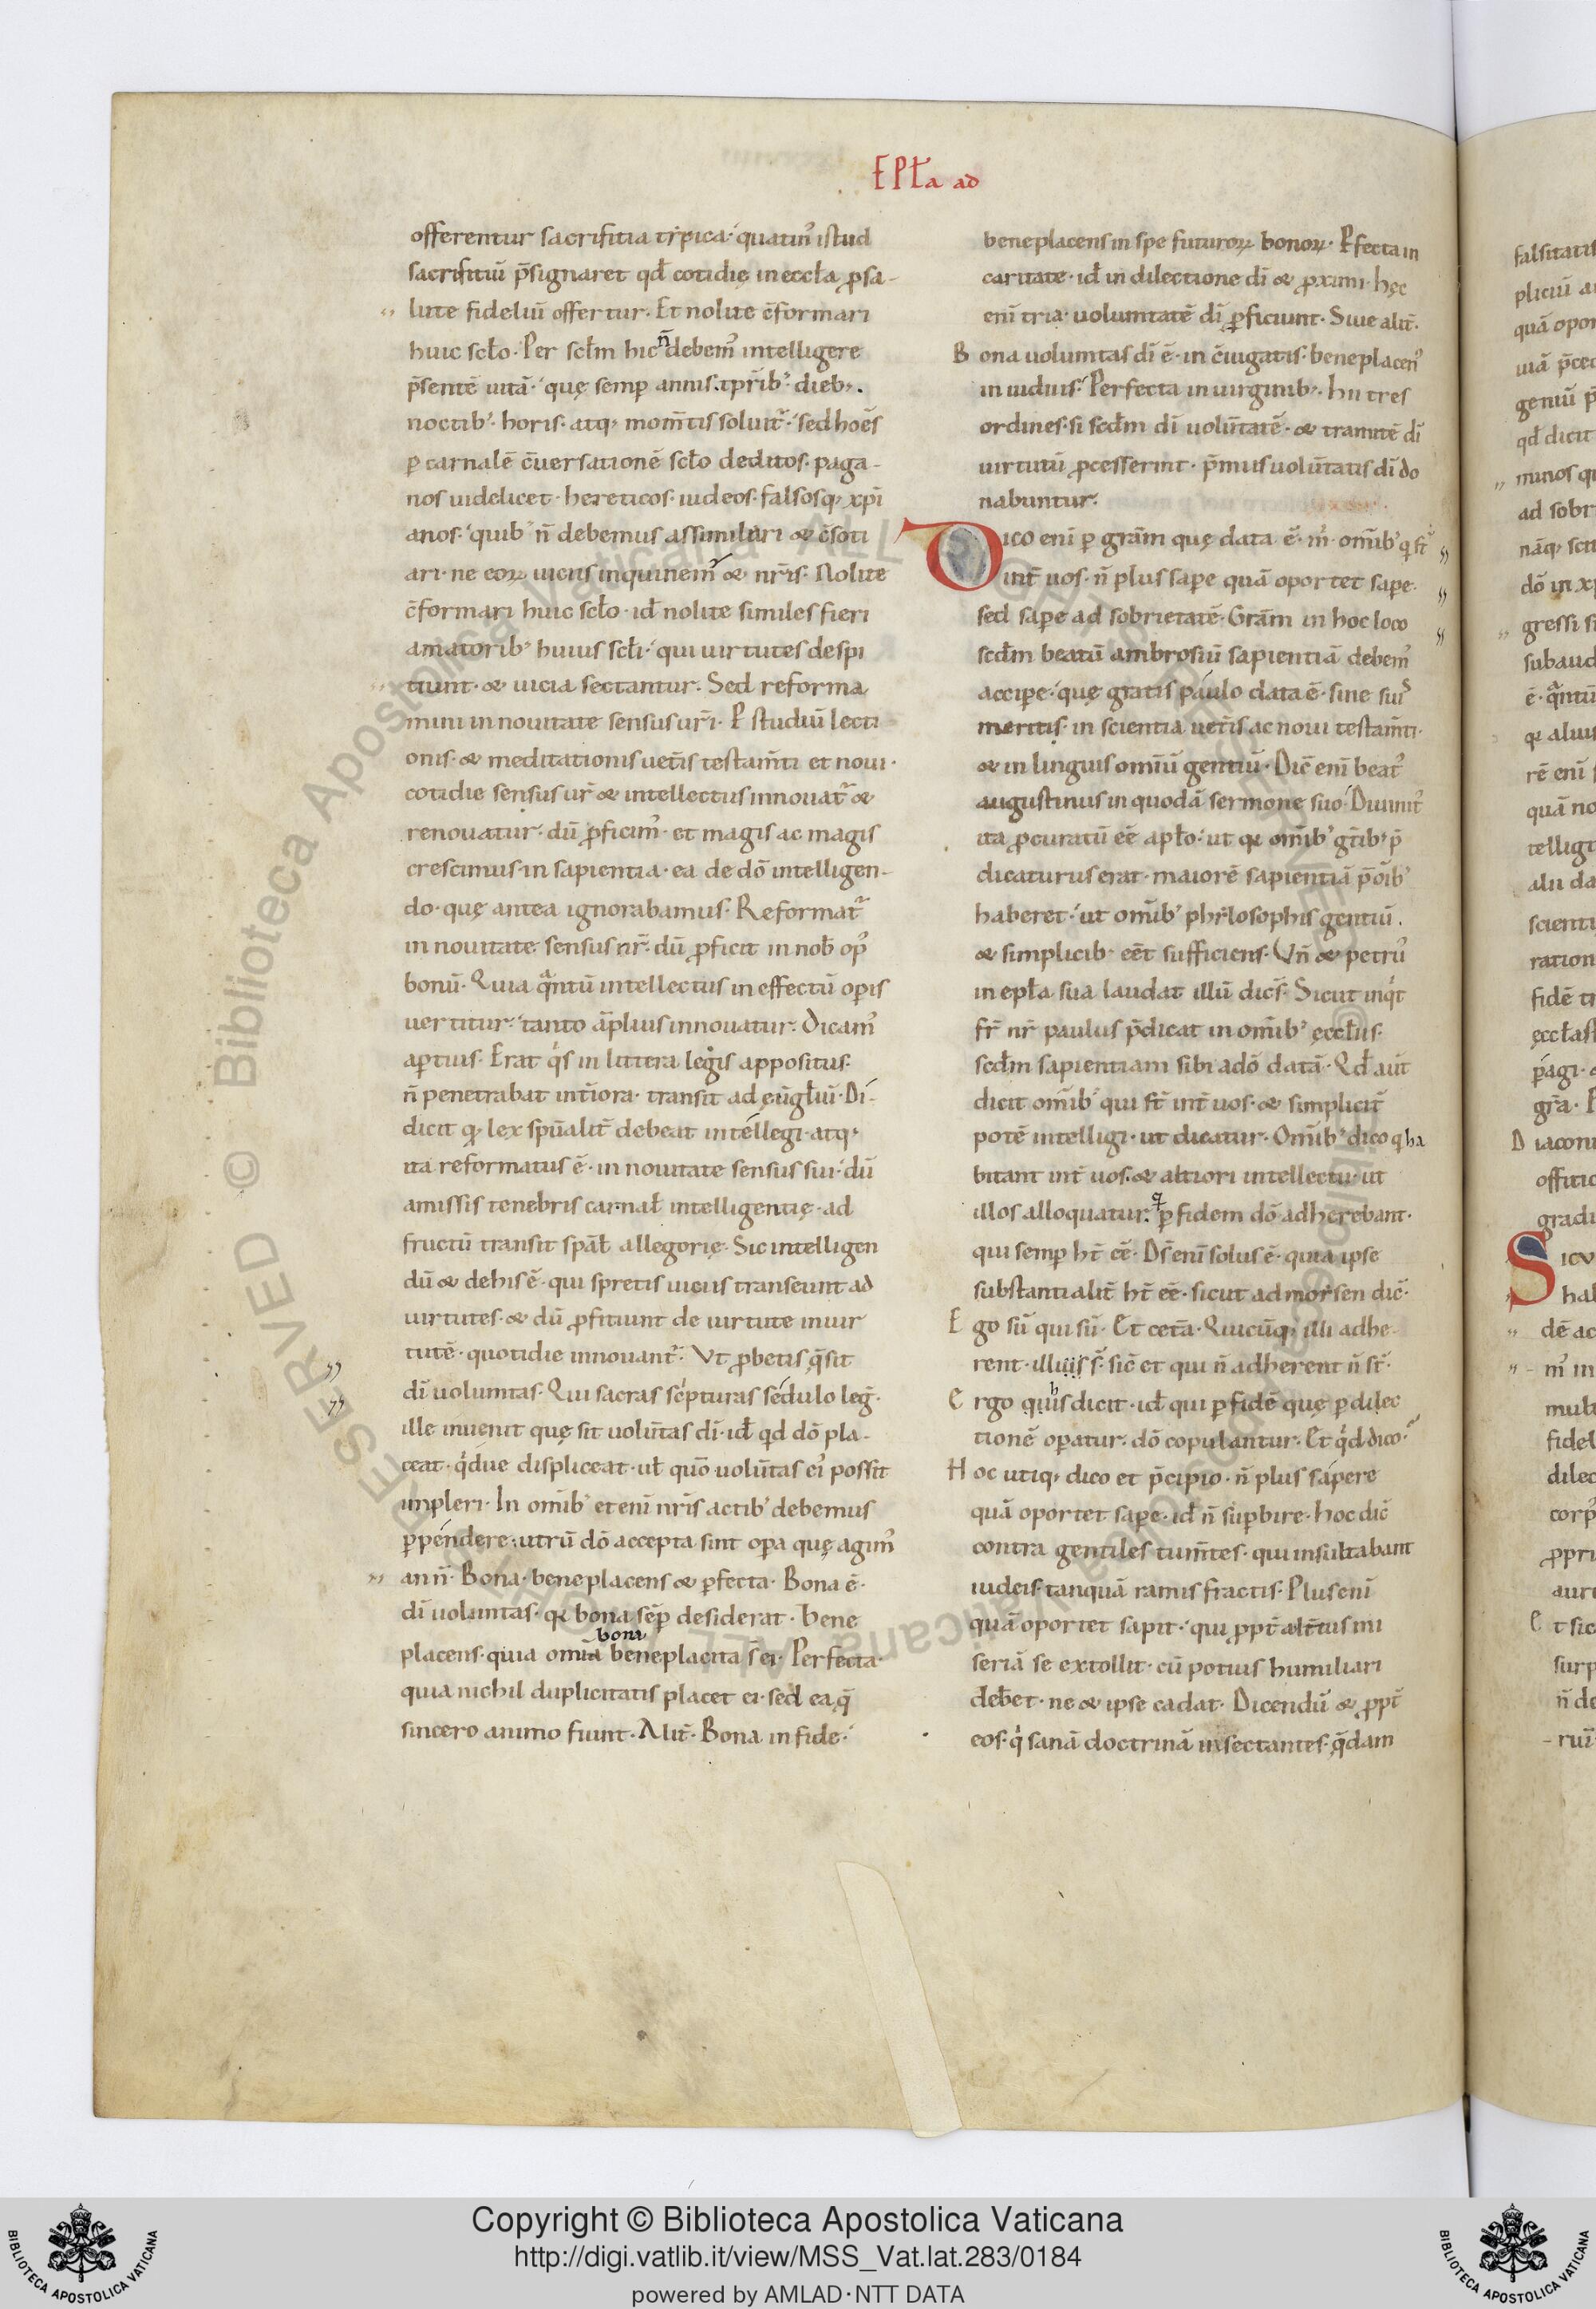 EPɫa ad
offerentur sacrifitia tẏpica· quatin᷒ istud
sacrifitiū p̄signaret qđ cotidię in eccɫa ꝓsa-
lute fideliū offertur. Et nolite c̄formari
huic scɫo. Per scɫm hic n̄ debem᷒ intelligere
p̄sentē uitā. quę semꝑ annis. tp̄rib᷒ dieb᷒.
noctib᷒. horis. atq; mom̄tis soluit᷑. sed hōes
ꝑ carnalē c̄uersationē scɫo deditos. paga-
nos uidelicet. hereticos. iudeos. falsosq; xp̄i
anos. quib᷒ n̄ debemus assimilari & c̄soti
ari. ne eoꝝ uiciis inquinem᷒ & nr̄is. Nolite
c̄formari huic scɫo. iđ nolite similes fieri
amatorib᷒ huius scɫi. qui uirtutes despi
tiunt. & uicia sectantur. Sed reforma
mini in nouitate sensus ur̄i. P studiū lecti
onis. & meditationis uet̄is testam̄ti et noui.
cotidie sensus ur̄ & intellectus innouat᷑ &
renouatur. dū ꝓficim᷒. et magis ac magis
crescimus in sapientia. ea de dō intelligen-
do. quę antea ignorabamus. Reformat᷑
in nouitate sensus nr̄. dū ꝓficit in nob̄ op᷒
bonū. Quia qͣntū intellectus in effectū oꝑis
uertitur. tanto āplius innouatur. Dicam᷒
aꝑtius. Erat qͥs in littera legis appositus.
n̄ penetrabat int̄iora. transit ad eu̅gɫiū. Di-
dicit qđ lex spūalit̄ debeat intellegi. atq;
ita reformatus ē. in nouitate sensus sui. dū
amissis tenebris carnaɫ intelligentię. ad
fructū transit spāɫ allegorię. Sic intelligen
dū & de his ē. qui spretis uiciis transeunt ad
uirtutes. & dū ꝓfitiunt de uirtute in uir
tutē. quotidie innouant᷑. Vt ꝓbetis q̄ sit
dī uoluntas. Qui sacras scͥpturas sedulo leg̅.
ille inuenit quę sit uolūtas dī. iđ qđ dō pla-
ceat. qͥdue displiceat. uɫ quō uolūtas ei᷒ possit
impleri. In om̄ib᷒ et enī nr̄is actib᷒ debemus
ꝑpendere. utrū dō accepta sint oꝑa quę agim᷒
an n̄. Bona. beneplacens & ꝑfecta. Bona ē.
dī uoluntas. qꝛ bona sēꝑ desiderat. Bene
bona
placens. quia omīa beneplacita s̄ ei. Perfecta.
quia nichil duplicitatis placet ei. sed ea q̄
sincero animo fiunt. Alit̄. Bona in fide.
beneplacens in spe futuroꝝ bonoꝝ. Pfecta in
caritate. iđ in dilectione dī & ꝓximi. hęc
enī tria. uoluntatē dī ꝑficiunt. Siue alit̄.
Bona uoluntas dī ē. in c̄iugatis. beneplacen᷒
in uiduis. Perfecta in uirginib᷒. hii tres
ordines. si scđm dī uolūtatē. & tramitē dī
uirtutū ꝓcesserint. p̄mus uolūtatis dī do
nabuntur.
Dico enī ꝑ grām quę data ē. mͥ. om̄ib᷒ q̄ st̄
int̄ uos. n̄ plus saꝑe quā oportet saꝑe.
sed saꝑe ad sobrietatē. Grām in hoc loco
scđm beatū ambrosiū sapientiā debem᷒
acciꝑe. quę gratis paulo data ē. sine suis
meritis. in scientia uet̄is ac noui testam̄ti.
& in linguis omīū gentiū. Dic̄ enī beat᷒
augustinus in quodā sermone suo. Diuinit᷒
ita ꝓcuratū eē apɫo. ut qꝛ om̄ib᷒ gt̄ib᷒ p̄
dicaturus erat. maiorē sapientiā p̄ ōib᷒
haberet. ut om̄ib᷒ phẏlosophis gentiū.
& simplicib᷒ eēt sufficiens. Vn̄ & petru᷒
in epɫa sua laudat illū dic̄s. Sicut inqͥt
fr̄ nr̄ paulus p̄dicat in om̄ib᷒ ęccɫiis.
scđm sapientiam sibi a dō datā. Qđ aūt
dicit om̄ib᷒ qui st̄ int̄ uos. & simplicit̄
potē intelligi. ut dicatur. Om̄ib᷒ dico q̄ ha
bitant int̄ uos. & altiori intellectu. ut
illos alloquatur. q ꝑ fidem dō adherebant.
qui semꝑ ht̄ eē. Ds̄ enī solus ē. quia ipse
substantialit̄ ht̄ eē. sicut ad moẏsen dic̄.
Ego sū qui sū. Et cetā. Quicūq; illi adhe-
rent. illi s̄. sic̄ et qui n̄ adherent n̄ st̄.
Ergo quibs dicit. iđ qui ꝑ fidē quę ꝑ dilec
tionē oꝑatur. dō copulantur. Et qͥd dico.
Hoc utiq; dico et p̄cipio. n̄ plus sapere
quā oportet saꝑe. iđ n̄ suꝑbire. hoc dic̄
contra gentiles tum̄tes. qui insultabant
iudeis. tanquā ramis fractis. Plus enī
quā oportet sapit. qui ꝓpt̄ alt̄ius mi
seriā se extollit. cū potius humiliari
deb̄et. ne & ipse cadat. Dicendū & ꝓpt̄
eos. qͥ sanā doctrinā insectantes. q̄dam
Copyright © Biblioteca Apostolica Vaticana
http://digi.vatlib.it/view/MSS_Vat.lat.283/0184
powered by AMLAD·NTT DATA